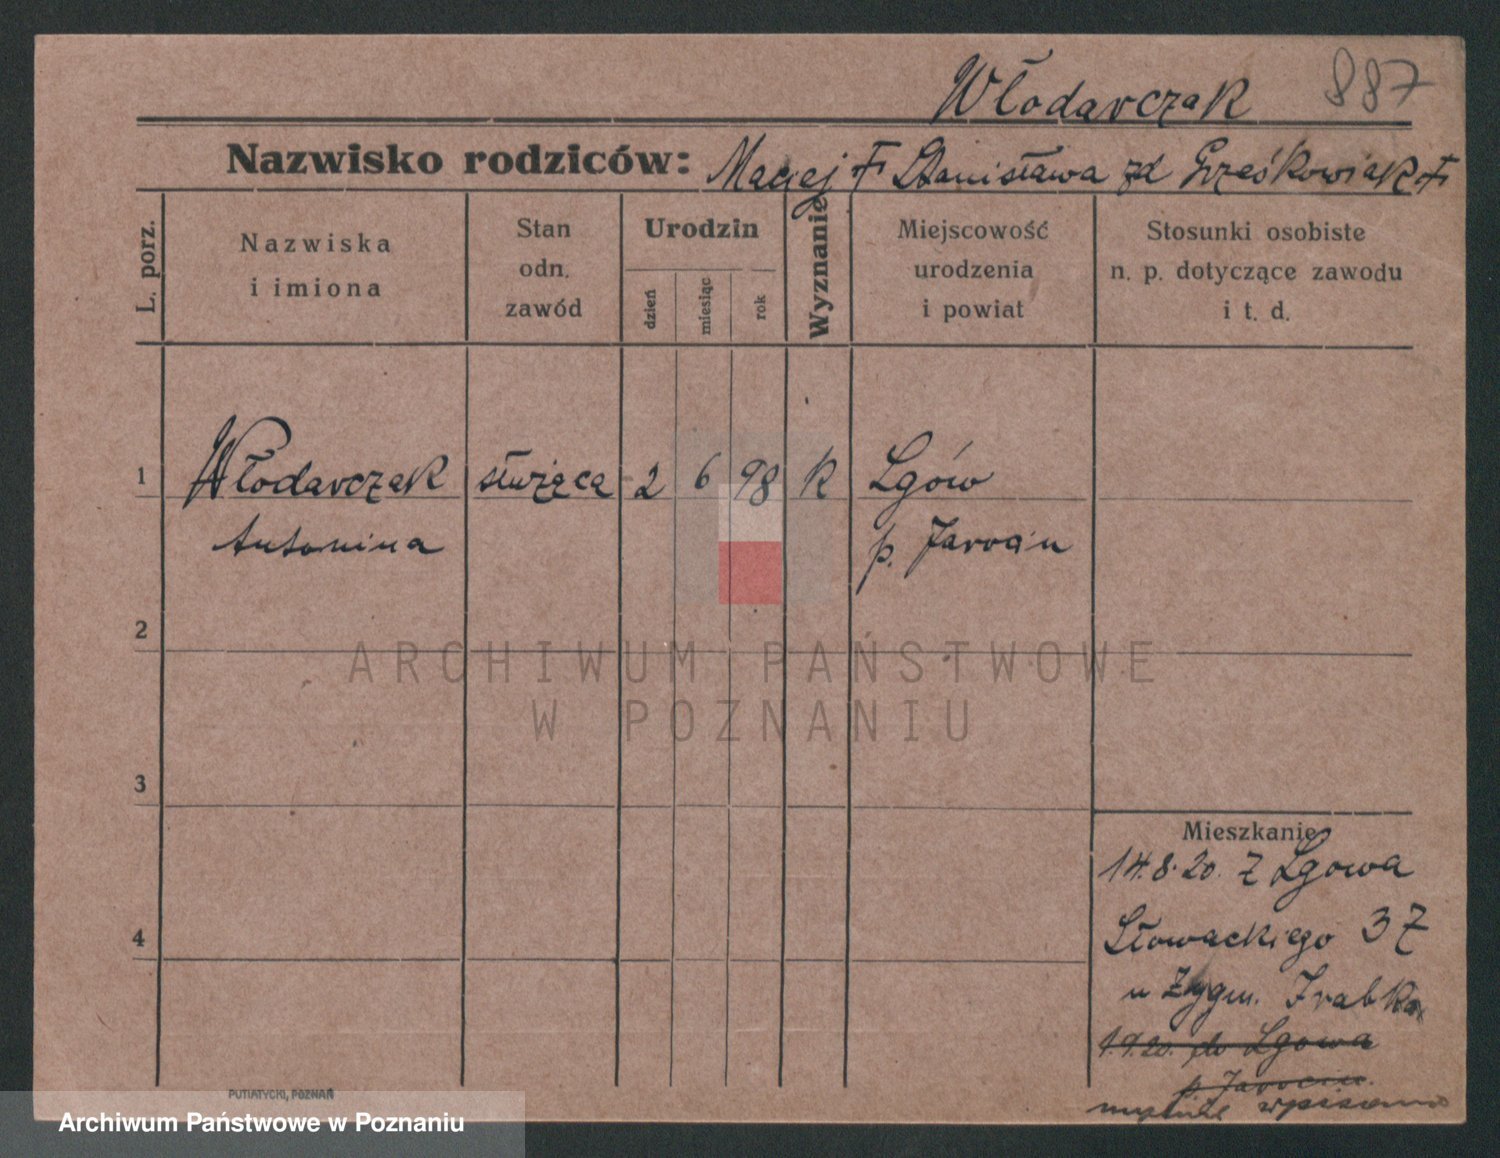 887
Włodarczak
Nazwisko rodziców: Maciej † Stanisława zd Grześkowiak †
L. porz.
Nazwiska
i imiona
Stan
odn.
zawód
Urodzin
dzień
miesiąc
rok
Wyznanie
Miejscowość
urodzenia
i powiat
Stosunki osobiste
n. p. dotyczące zawodu
i t. d.
1 Włodarczak służąca 2 6 98 K Lgów
Antonina p. Jarocin
2
3
4
ARCHIWUM PAŃSTWOWE
W POZNANIU
Mieszkanie
14.8.20. z Lgowa
Słowackiego 37
u Zygm.
1.9.20. do Lgowa
p Jarocin.
mylnie wpisano
PUTIATYCKI, POZNAŃ
Archiwum Państwowe w Poznaniu